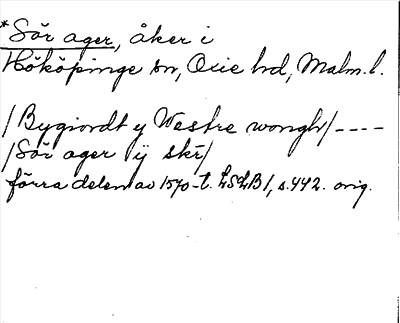 *Sör ager, åker i
Hököpinge sn, Oxie hd, Malm. l.
/Bygiordt y Westre wongh/----
/Sör ager ÿ skr/
förra delen av 1570-t. LSLB1, s. 442. orig.